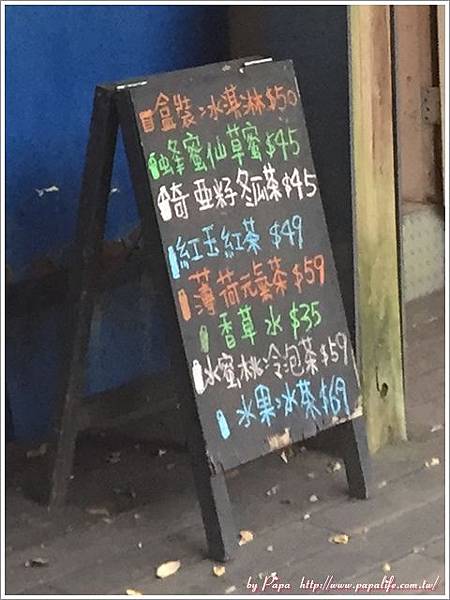 盒裝冰淇淋$50
蜂蜜仙草蜜$45
奇亞籽冬瓜茶$45
紅玉紅茶$49
薄荷元氣茶$59
香草水$35
水蜜桃冷泡茶$59
水果冰茶$69
by Papa http://www.papalife.com.tw/